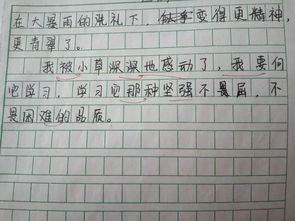 在大暴雨的洗礼下,变得更精神,
更青翠了。
我被小草深深地感动了,我要向
它学习,学习它那种坚强不畏屈,不
畏困难的品质。